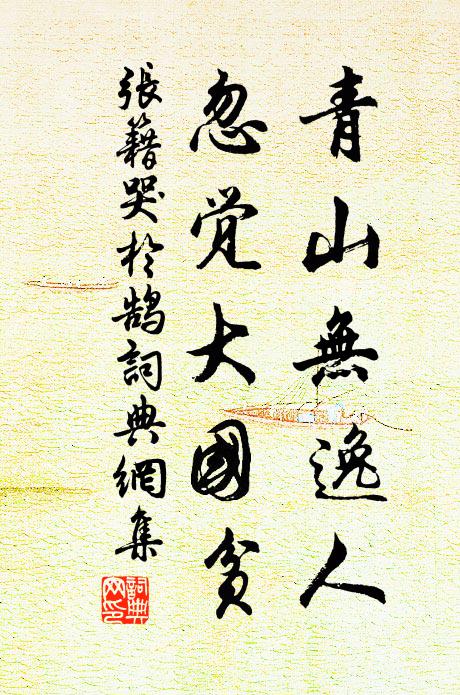 青山無逸人
忽覺大國貧
張籍哭於鵠詞典網集
詞典網印